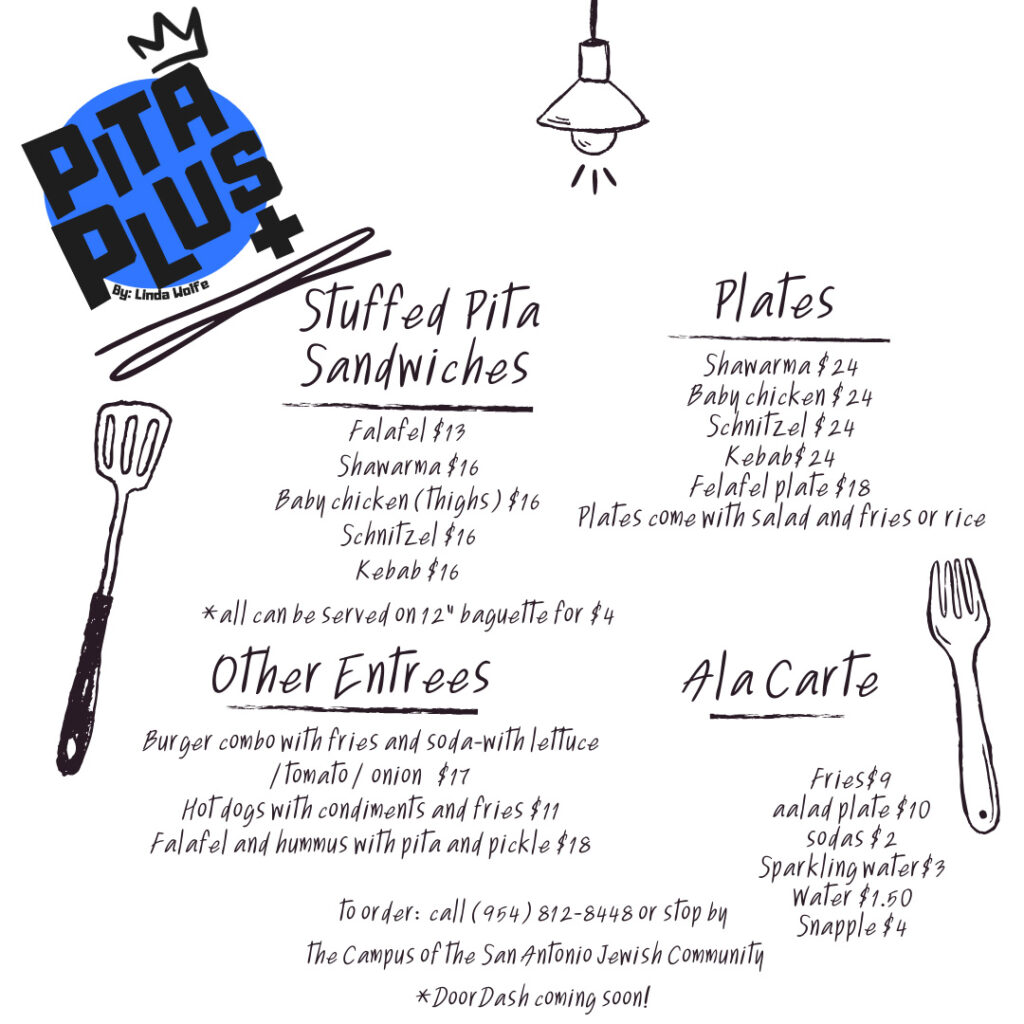 PiTA
PLUS+
By: Linda Wolfe
Stuffed Pita
Sandwiches
Falafel $13
Shawarma $16
Baby chicken (thighs) $16
Schnitzel $16
Kebab $16
*all can be served on 12" baguette for $4
Plates
Shawarma $24
Baby chicken $24
Schnitzel $24
Kebab$24
Felafel plate $18
Plates come with salad and fries or rice
Other Entrees
Burger combo with fries and soda-with lettuce
/tomato/ onion $17
Hot dogs with condiments and fries $11
Falafel and hummus with pita and pickle $18
Ala Carte
Fries$9
aalad plate $10
sodas $2
Sparkling water$3
Water $1.50
Snapple $4
to order: call (954) 812-8448 or stop by
the Campus of the San Antonio Jewish Community
*DoorDash coming soon!